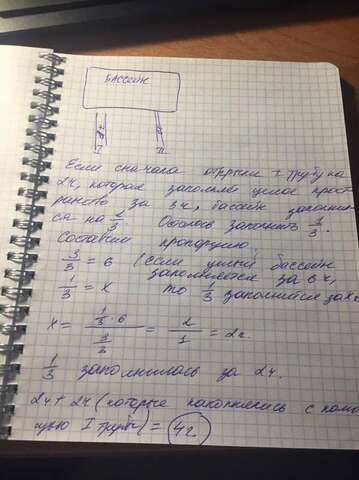 БАССЕЙН
I II
Если сначала открыли I трубу на
2ч, которая заполняла целое прост
ранство за 3ч, бассейн заполнит
ся на 2/3. Осталось заполнить 1/3.
Составим пропорцию:
3/3 = 6 (если целый бассейн
заполняется за 6ч,
1/3 = x то 1/3 заполнится за x
x = (1/3 · 6)/(3/3) = 2/1 = 2ч.
1/3 заполнилась за 2ч.
2ч + 2ч (которые наполнялись с помо
щью I трубы) = 4ч